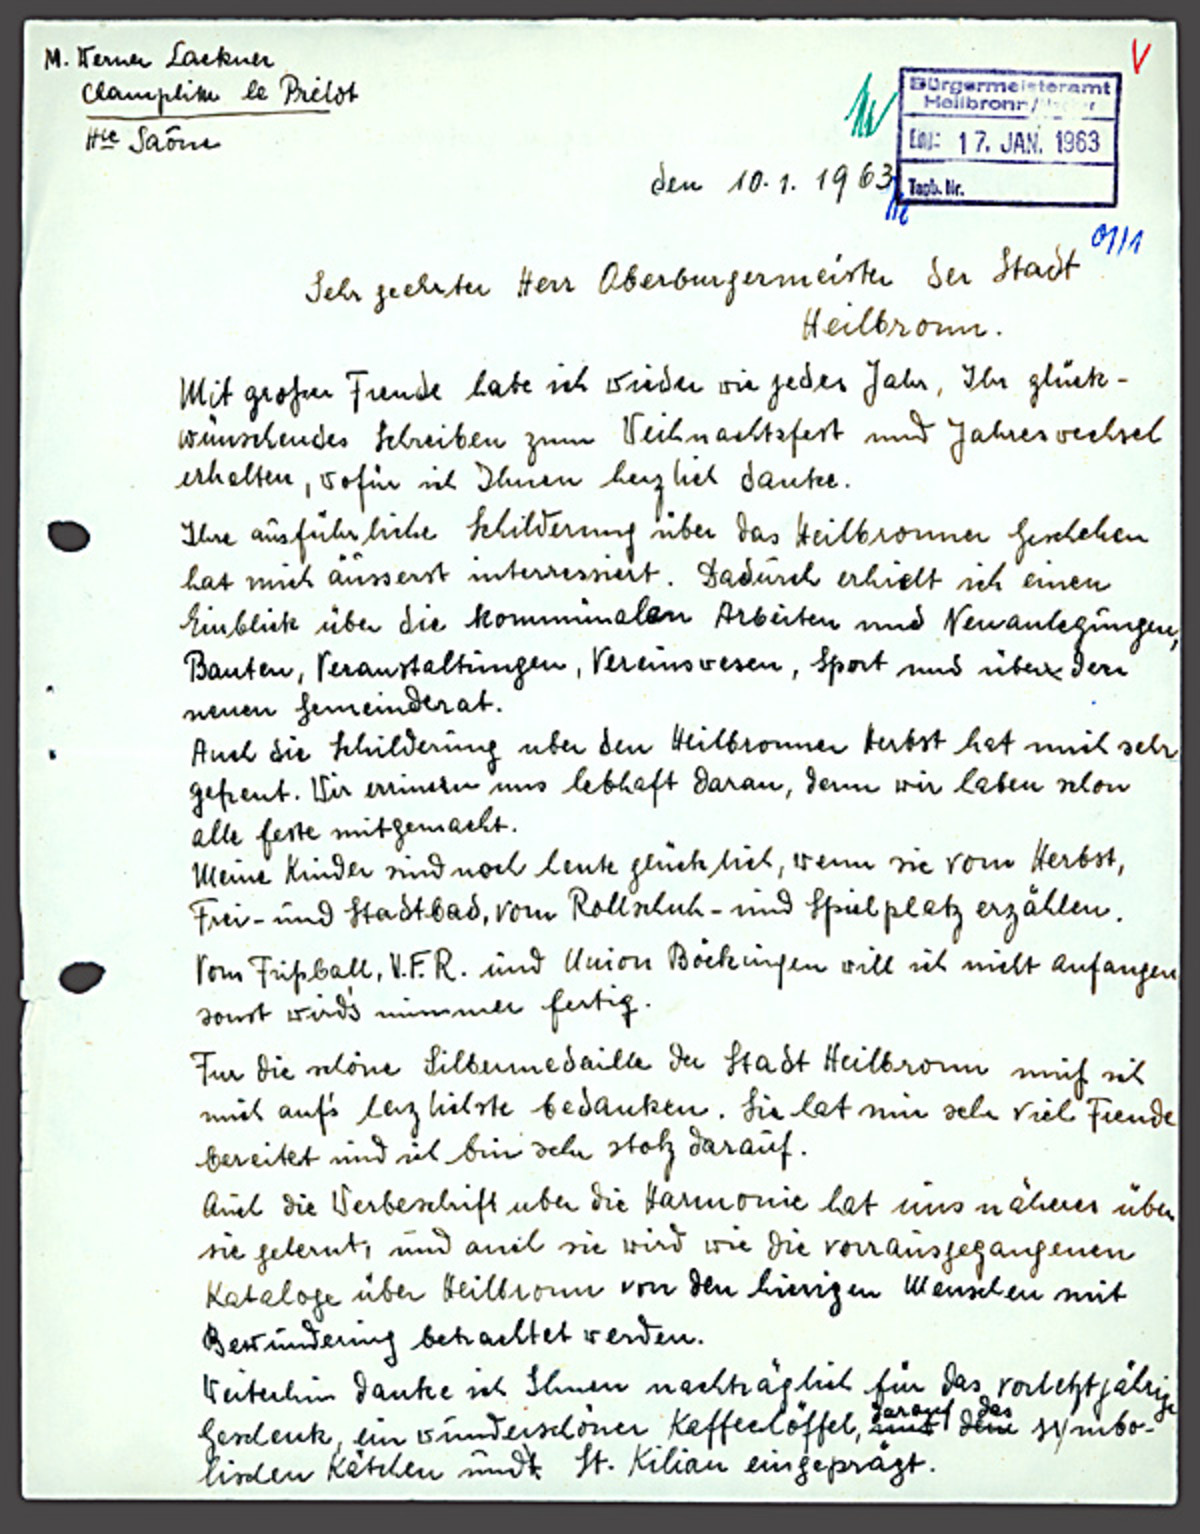 M. Werner Lackner
Champlitte le Prélot
Hte Saône
V
Bürgermeisteramt
Heilbronn/
Eing: 17. JAN. 1963
Tagb. Nr.
den 10.1.1963
01/1
Sehr geehrter Herr Oberburgermeister der Stadt
Heilbronn.
Mit großer Freude habe ich wieder wie jedes Jahr, Ihr glück-
wünschendes Schreiben zum Weihnachtsfest und Jahreswechsel
erhalten, wofür ich Ihnen herzlich danke.
Ihre ausführliche Schilderung über das Heilbronner Geschehen
hat mich äusserst interressiert. Dadurch erhielt ich einen
Einblick über die kommunalen Arbeiten und Neuanlegungen,
Bauten, Veranstaltungen, Vereinswesen, Sport und über den
neuen Gemeinderat.
Auch die Schilderung uber den Heilbronner Herbst hat mich sehr
gefreut. Wir errinern uns lebhaft daran, denn wir haben schon
alle feste mitgemacht.
Meine Kinder sind noch heute glücklich, wenn sie vom Herbst,
Frei- und Stadtbad, vom Rollschuh- und Spielplatz erzählen.
Vom Fußball, V.F.R. und Union Böckingen will ich nicht anfangen
sonst wird's nimmer fertig.
Fur die schöne Silbermedaille der Stadt Heilbronn muß ich
mich auf's herzlichste bedanken. Sie hat mir sehr viel Freude
bereitet und ich bin sehr stolz darauf.
Auch die Werbeschrift uber die Harmonie hat uns näheres über
sie gelernt, und auch sie wird wie die vorrausgegangenen
Kataloge über Heilbronn von den hiesigen Menschen mit
Bewunderung betrachtet werden.
Weiterhin danke ich Ihnen nachträglich für das vorletztjährige
Geschenk, ein wunderschöner Kaffeelöffel, darauf das symbo-
lischen Kätchen und St. Kilian eingeprägt.